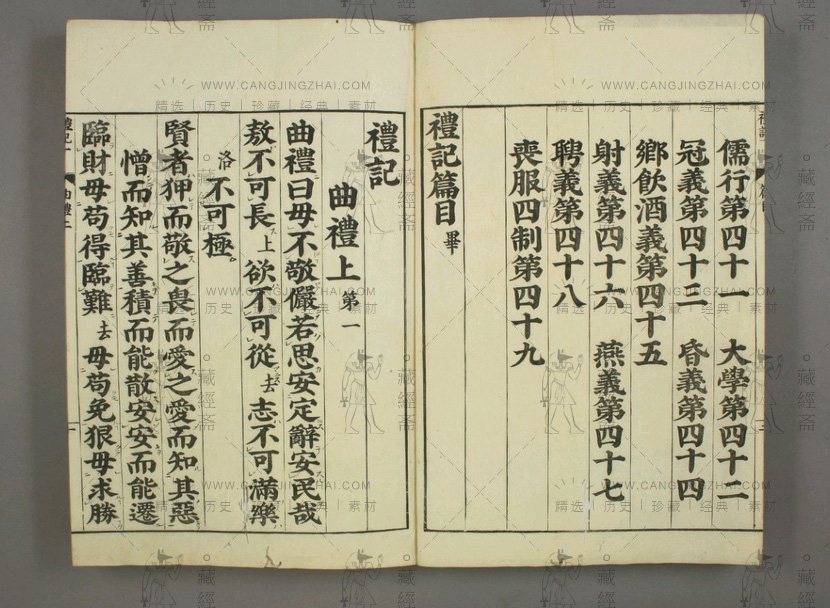 儒行第四十一 大學第四十二
冠義第四十三 昏義第四十四
鄉飲酒義第四十五
射義第四十六 燕義第四十七
聘義第四十八
喪服四制第四十九
禮記篇目畢
禮記
曲禮上第一
曲禮曰毋不敬儼若思安定辭安民哉
敖不可長上欲不可從去志不可滿樂
洛不可極。
賢者狎而敬之畏而愛之愛而知其惡
憎而知其善積而能散安安而能遷
臨財毋苟得臨難去毋苟免狠毋求勝
禮記一 曲禮上
WWW.CANGJINGZHAI.COM
精选 历史 珍藏 经典 素材
藏經斋